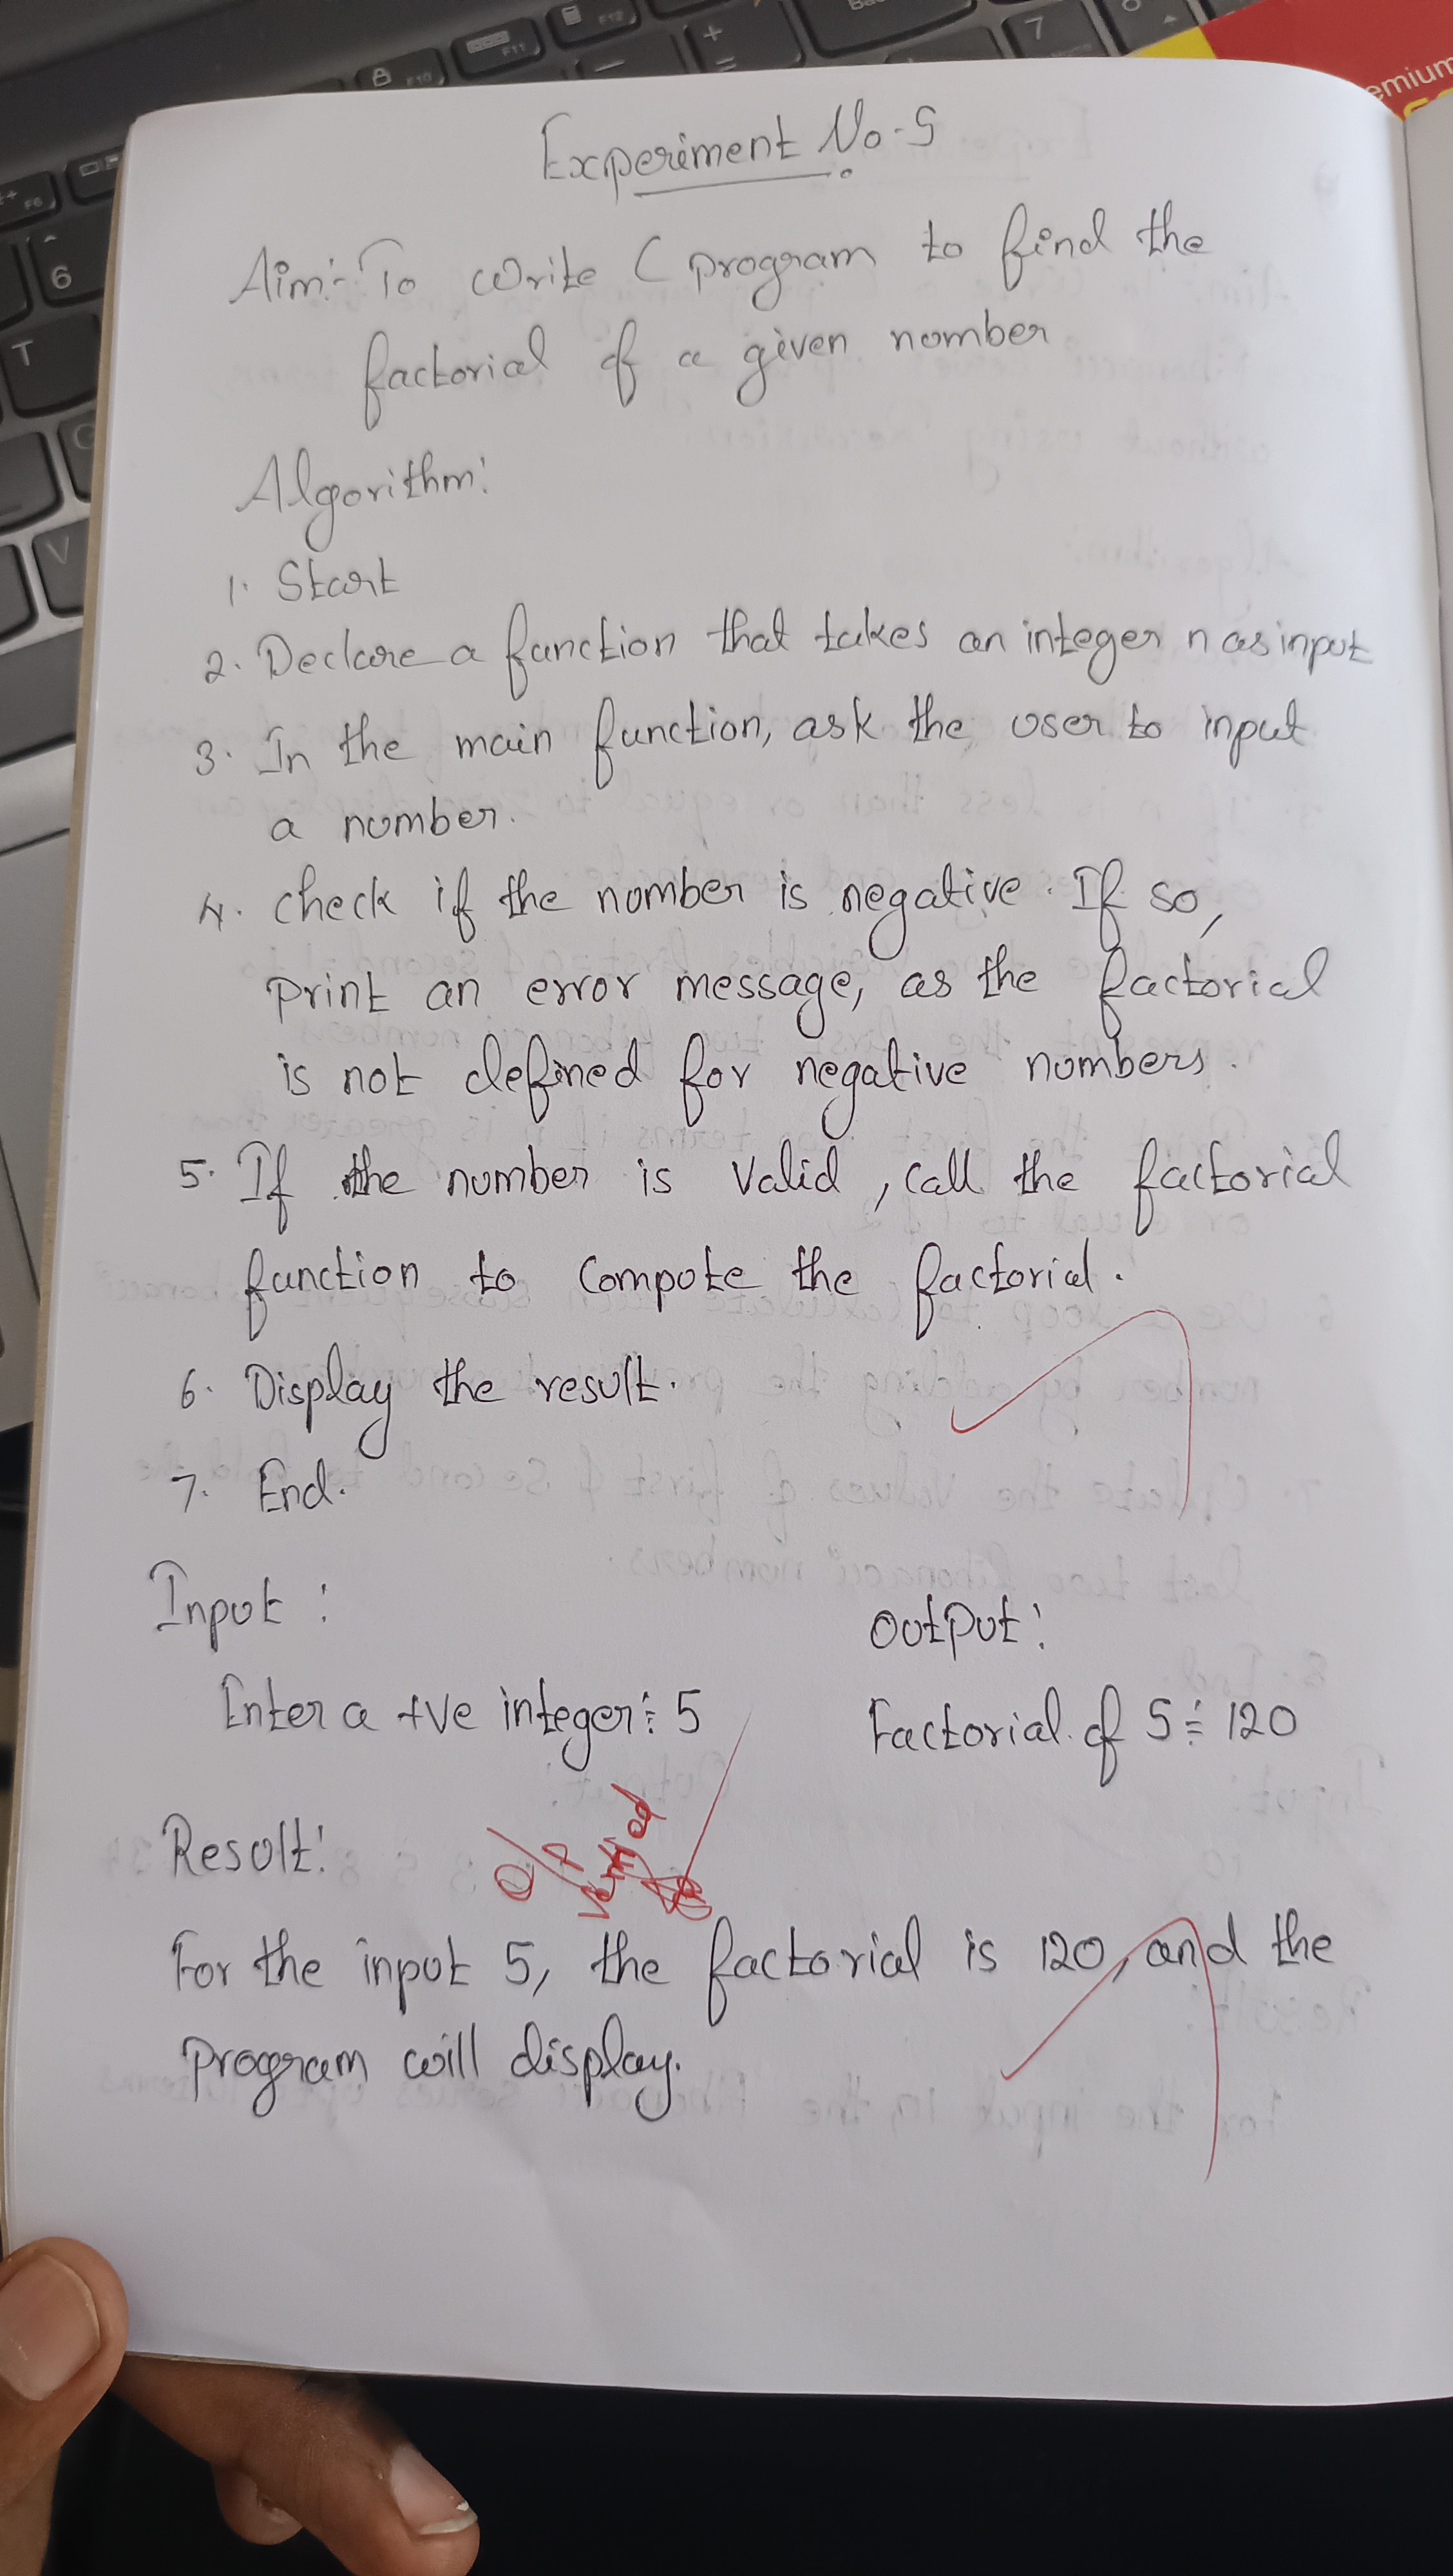 Experiment No-5
Aim:- To write C program to find the
factorial of a given number
Algorithm:
1. Start
2. Declare a function that takes an integer n as input
3. In the main function, ask the user to input
a number.
4. check if the number is negative. If so,
print an error message, as the factorial
is not defined for negative numbers.
5. If the number is valid, call the factorial
function to compute the factorial.
6. Display the result.
7. End.
Input :
Enter a +ve integer:- 5
Output:
Factorial of 5 := 120
Result:
O/P
verified
For the input 5, the factorial is 120, and the
program will display.